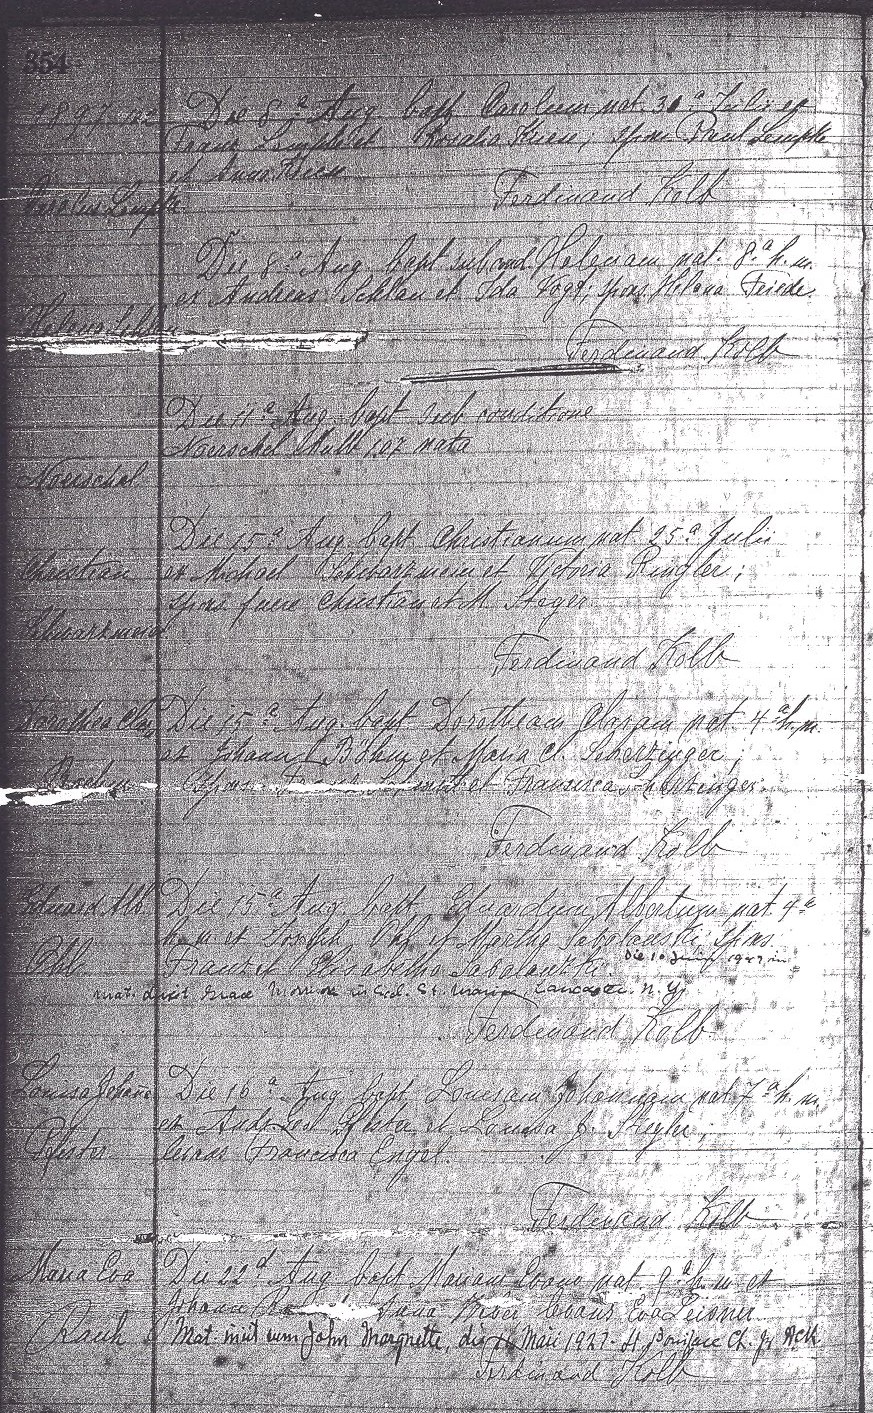 354
1897
Die 8ª Aug. bapt. Carolum nat. 30ª Julii ex
Franz Lempke et Rosalia Kien; spons Paul Lempke
et Anna Kien
Carolus Lempke
Ferdinand Kolb
Die 8ª Aug. bapt sub cond. Helenam nat. 8ª h. m.
ex Andreas Schlau et Ida Vogt; spons Helena Friede.
Helena Schlau
Ferdinand Kolb
Die 11ª Aug. bapt sub conditione
Noerschel nata
Noerschel
Die 15ª Aug. bapt. Christianum nat. 25ª Julii
Christian ex Michael Schwarzmeier et Victoria Ringler;
spons fuere Christian et M. Steger
Ferdinand Kolb
Dorothea Clara Die 15ª Aug. bapt Dorotheam Claram nat. 4ª h. m.
ex Johann Böhm et Maria Cl. Scherzinger;
Boehm Spons et Francisca Scherzinger.
Ferdinand Kolb
Eduard Alb. Die 15ª Aug. bapt. Eduardum Albertum nat 4ª
h. m. ex Joseph Ohl et Martha Sabalawski spons
Ohl Franz et Elisabetha Die 10 1927 in
mat. Grace Lancaster. N. Y.
Ferdinand Kolb
Louisa Johanna Die 16ª Aug bapt. Louisam Johannam nat 7ª h. m.
ex Andreas Pfister et Louisa J.
Pfister levans Francisca Engel.
Ferdinand Kolb
Maria Eva Die 22ª Aug bapt Mariam Evam nat 9ª h. m ex
Johann Anna levans Eva
Rauh Mat. iniit cum John Marquette, die Maii 1927. St. Boniface Ch.
Ferdinand Kolb